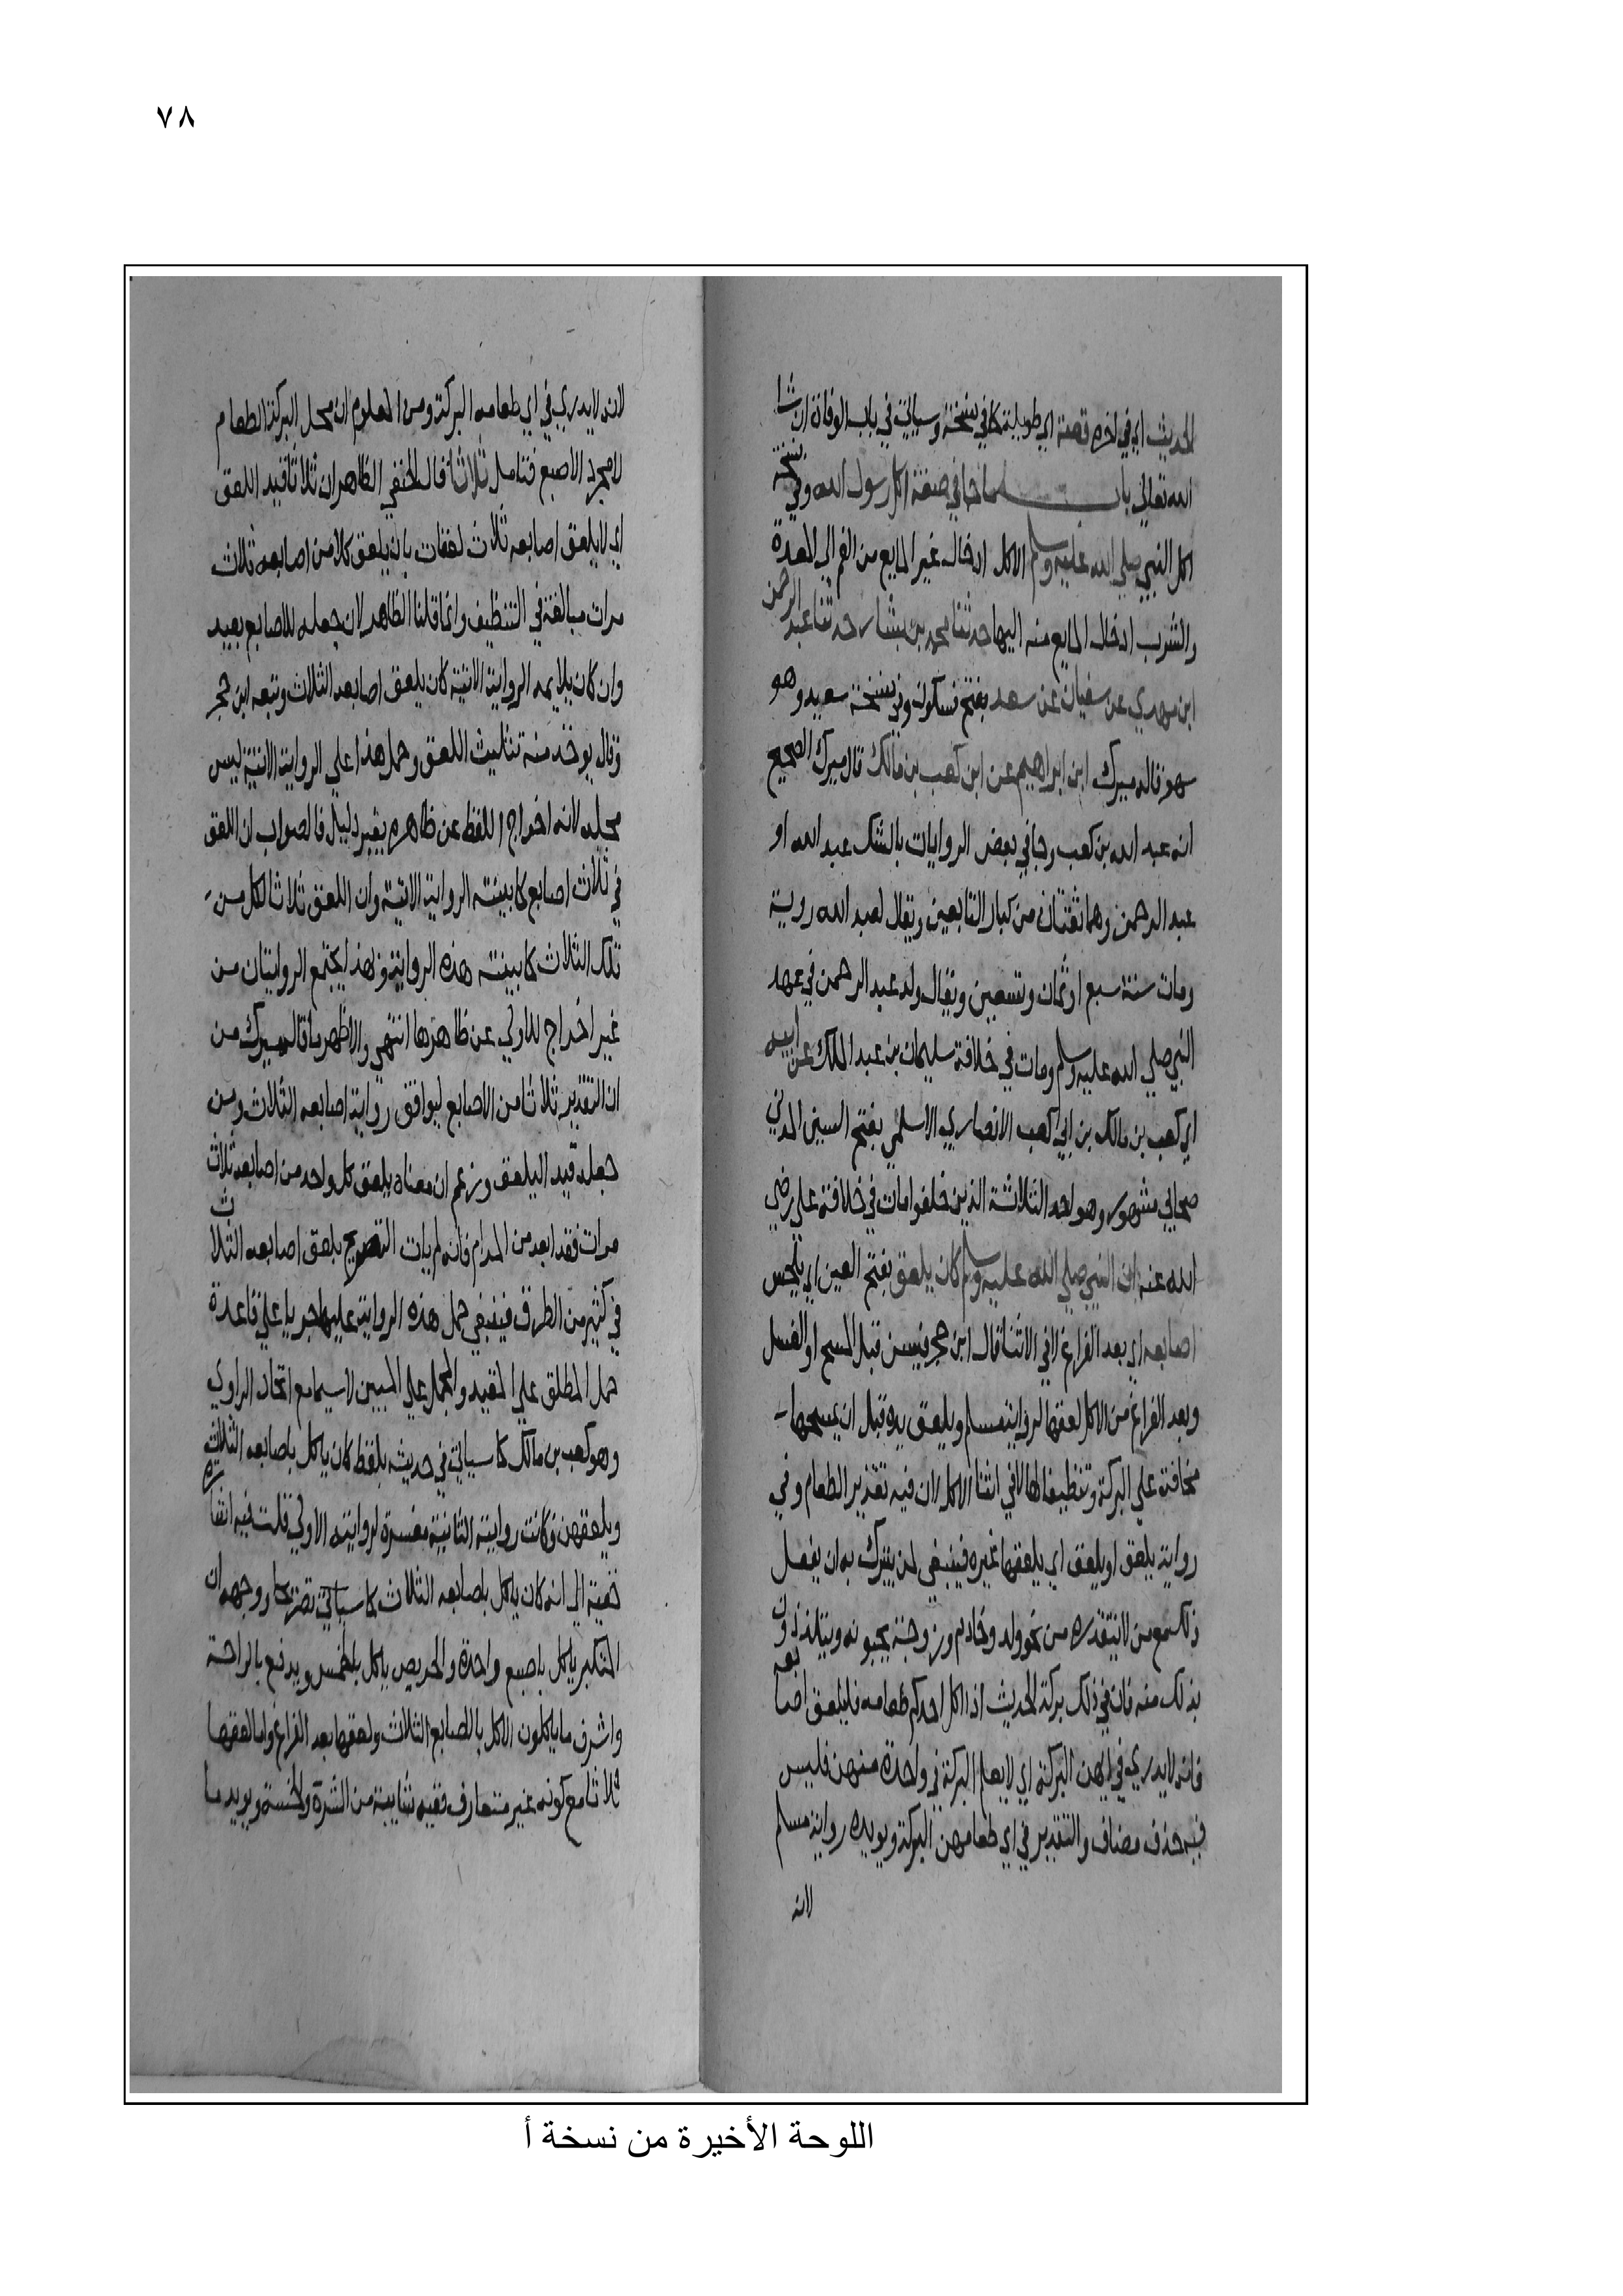 ٧٨
الحديث اي في اخره قصة اي طويلة كما في نسخة وسياتي في باب الوفاة ان شا
الله تعالي باب ما جا في صفة اكل رسول الله وفي نسخة
اكل النبي صلي الله عليه وسلم الاكل ادخال غير المايع من الفم الي المعدة
والشرب ادخال المايع منه اليها حدثنا محمد بن بشار حدثنا عبد الرحمن
ابن مهدي عن سفيان عن سعد بفتح فسكون وفي نسخة سعيد وهو
سهو قاله ميرك ابن ابراهيم عن ابن كعب بن مالك قال ميرك الصحيح
انه عبد الله بن كعب وجا في بعض الروايات بالشك عبد الله او
عبد الرحمن وهما ثقتان من كبار التابعين ويقال لعبد الله روية
ومات سنة سبع او ثمان وتسعين ويقال ولد عبد الرحمن في عهد
النبي صلي الله عليه وسلم ومات في خلافة سليمان بن عبد الملك عن ابيه
اي كعب بن مالك بن ابي كعب الانصاري الاسلمي بفتح السين المدني
صحابي مشهور وهو احد الثلاثة الذين خلفوا مات في خلافة علي رضي
الله عنه ان النبي صلي الله عليه وسلم كان يلعق بفتح العين اي يلحس
اصابعه اي بعد الفراغ لا في الاثنا قال ابن حجر فيسن قبل المسح او الغسل
وبعد الفراغ من الاكل لعقها لرواية مسلم ويلعق يده قبل ان يمسحها
محافظة علي البركة وتنظيفا لها لا في اثنا الاكل لان فيه تقذير الطعام وفي
رواية يلعق او يلعق اي يلعقها غيره فينبغي لمن يتبرك به ان يفعل
ذلك مع من لا يتقذره من نحو ولد وخادم وزوجة يحبونه ويتلذذون
بذلك منه فان في ذلك بركة لحديث اذا اكل احدكم طعامه فليلعق اصابعه
فانه لا يدري في ايهن البركة اي لا يعلم البركة في واحدة منهن فليس
فيه حذف مضاف والتقدير في اي طعامهن البركة ويويده رواية مسلم
لانه
لانه لا يدري في اي طعامه البركة ومن المعلوم ان محل البركة الطعام
لا مجرد الاصبع فتامل ثلاثا قال الحنفي الظاهر ان ثلاثا قيد اللعق
اي لا يلعق اصابعه ثلاث لعقات بان يلعق كلا من اصابعه ثلاث
مرات مبالغة في التنظيف وانما قلنا الظاهر لان جعله للاصابع بعيد
وان كان يلايمه الرواية الاتية كان يلعق اصابعه الثلاث وتبعه ابن حجر
وقال يوخذ منه تثليث اللعق وحمل هذا علي الرواية الاتية ليس
بمحله لانه اخراج اللفظ عن ظاهره بغير دليل فالصواب ان اللعق
في ثلاث اصابع كما بينته الرواية الاتية وان اللعق ثلاثا لكل من
تلك الثلاث كما بينته هذه الرواية وبهذا يجتمع الروايتان من
غير اخراج للاولي عن ظاهرها انتهي والاظهر ما قاله ميرك من
ان التقدير ثلاثا من الاصابع ليوافق رواية اصابعه الثلاث ومن
جعله قيد اليلعق وزعم ان معناه يلعق كل واحد من اصابعه ثلاث
مرات فقد ابعد من المرام فانه لم يات التصريح بلعق اصابعه الثلاث
في كثير من الطرق فينبغي حمل هذه الرواية عليها جريا علي قاعدة
حمل المطلق علي المقيد والمجمل علي المبين لا سيما مع اتحاد الراوي
وهو كعب بن مالك كما سياتي في حديثه بلفظ كان ياكل باصابعه الثلاث
ويلعقهن وكانت روايته الثانية مفسرة لروايته الاولي قلت فيه اشارة
خفية الي انه كان ياكل باصابعه الثلاث كما سياتي تصريحا ووجهه ان
المتكبر ياكل باصبع واحدة والحريص ياكل بالخمس ويدفع بالراحة
واشرف ما ياكلون الاكل بالاصابع الثلاث ولعقها بعد الفراغ واما لعقها
ثلاثا مع كونه غير متعارف ففيه شايبة من الشره والخسة ويويد ما
اللوحة الأخيرة من نسخة أ